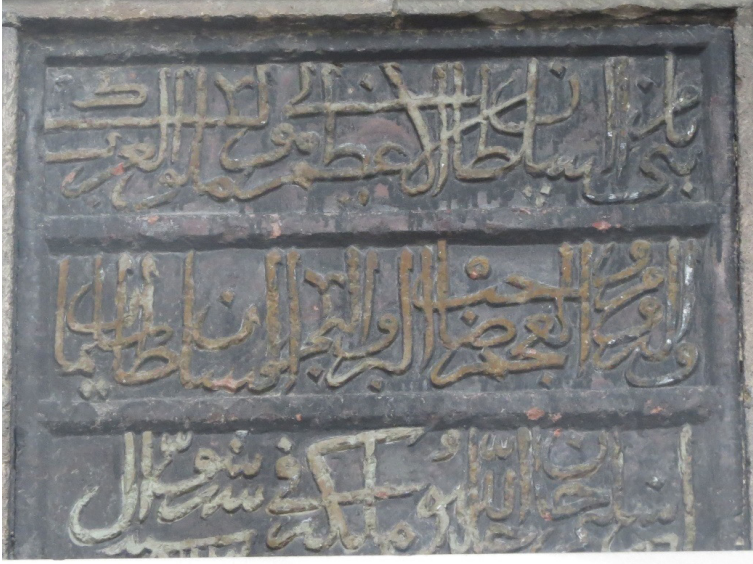 بنى باذن السلطان الاعظم مولى ملوك العرب
والروم والعجم صاحب البر والبحر السلطان سليمان
ابن سليم خان خلد الله ملكه في شهر شوال